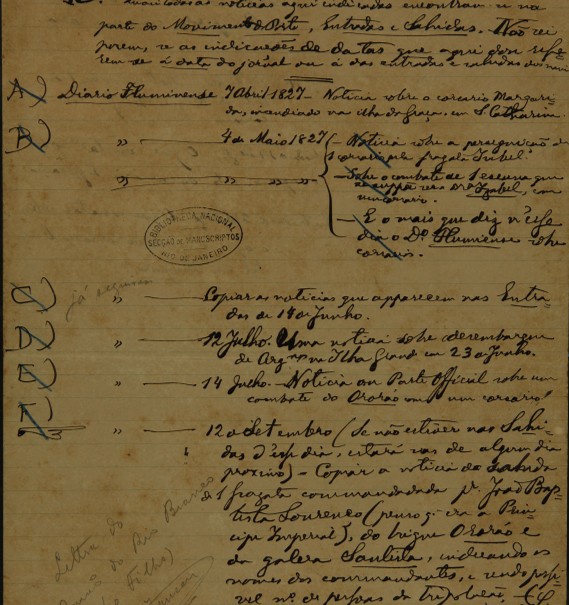 as noticias aqui indicadas encontram-se na
parte do Movimento do Porto, Entradas e Sahidas. Não sei
porem, se as indicações de datas que aqui dou refe=
rem-se á data do jornal ou á das entradas e sahidas dos navios
A) Diario Fluminense 7 Abril 1827 - Noticia sobre o corsario Margari=
da, incendiado na ilha da Graça, em S. Catharina.
B) " — 4 de Maio 1827 (- Noticia sobre a perseguição de
1 corsario pela fragata Izabel.
" — " " " — Sobre o combate de 1 escuna que
Izabel, com
um corsario.
— E o mais que diz n'esse
dia o Do Fluminense sobre
corsarios.
BIBLIOTHECA NACIONAL
SECÇÃO DE MANUSCRIPTOS
RIO DE JANEIRO
já
C) " — Copiar as noticias que apparecem nas Entra=
das de 14 de Junho.
D) " — 12 Julho. Uma noticia sobre desembarque
de Argnos na Ilha Grande em 23 de Junho.
E) " — 14 Julho. - Noticia ou Parte Official sobre um
combate do Ororão com um corsario
F) " — 12 de Setembro (Se não estiver nas Sahi=
das d'esse dia, estará nas de algum dia
proximo) - Copiar a noticia da sahida
de 1 fragata commandada pr. João Bap=
tista Lourenço (penso q. era a Prin=
cipe Imperial), do brigue Ororão e
da galera Santista, indicando os
nomes dos commandantes, e sendo possi=
vel no. de pessoas da tripolação
Lettra do
Barão do Rio Branco
Filho)